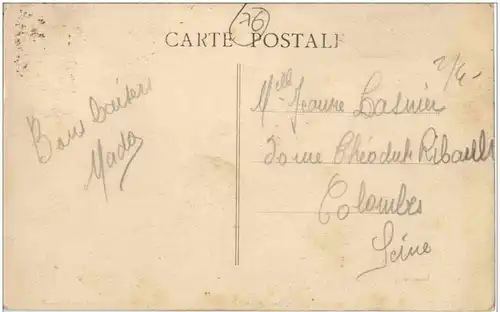 CARTE POSTALE
76
2/4-
Bons baisers
Mado
Mlle Jeanne Lasnier
rue Théodule Ribault
Colombes
Seine